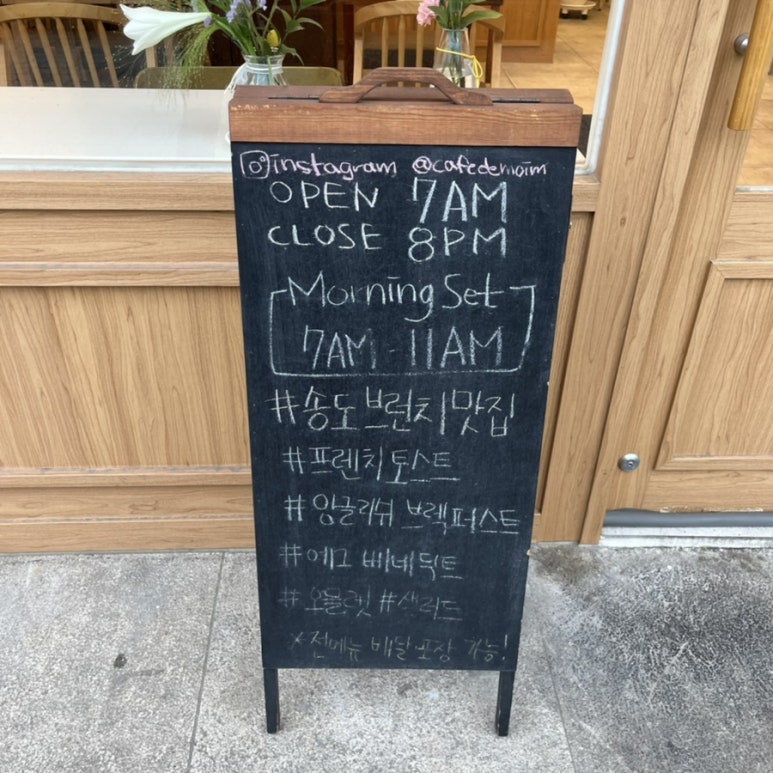 instagram @cafedemoim
OPEN 7AM
CLOSE 8PM
Morning Set
7AM - 11AM
#송도브런치맛집
#프렌치토스트
#잉글리쉬 브렉퍼스트
#에그 베네딕트
#오믈렛 #샐러드
*전메뉴 배달 포장 가능!